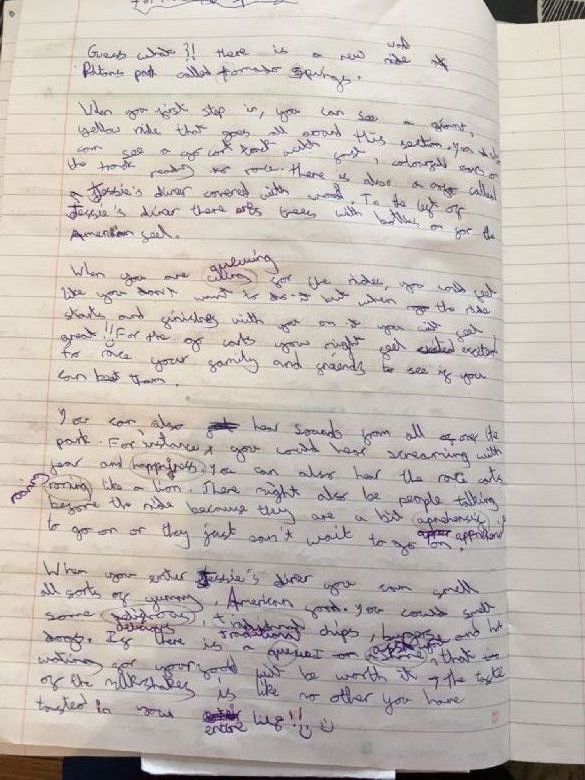 Guess what?!! there is a new ride at
Paltons park called Tornado Springs.
When you first step in, you can see a giant,
yellow ride that goes all around this section. You
can see a go cart track with fast, coloured cars on
the track ready to race. there is also a called
Jessie's diner covered with wood. To the left of
Jessie's diner there are trees with bottles on for the
American feel.
queueing
When you are for the rides, you could feel
like you don't want to do it but when the ride
starts and finishes with you on it you will feel
great!! For the go carts you might feel excited
to race your family and friends to see if you
can beat them.
You can, also hear sounds from all over the
park. For instance, you could hear screaming with
fear and happyness you can also hear the race carts
roaring
roring like a lion. There might also be people talking
before the ride because they are a bit
to go on or they just can't wait to go on.
When you enter Jessie's diner you can smell
all sorts of yummy, American food. You could smell
some chips, burgers and hot
delicious traditional
dogs. If there is a on that
waiting for your food will be worth it the taste
of the milkshakes is like no other you have
tasted in your life!!
entire